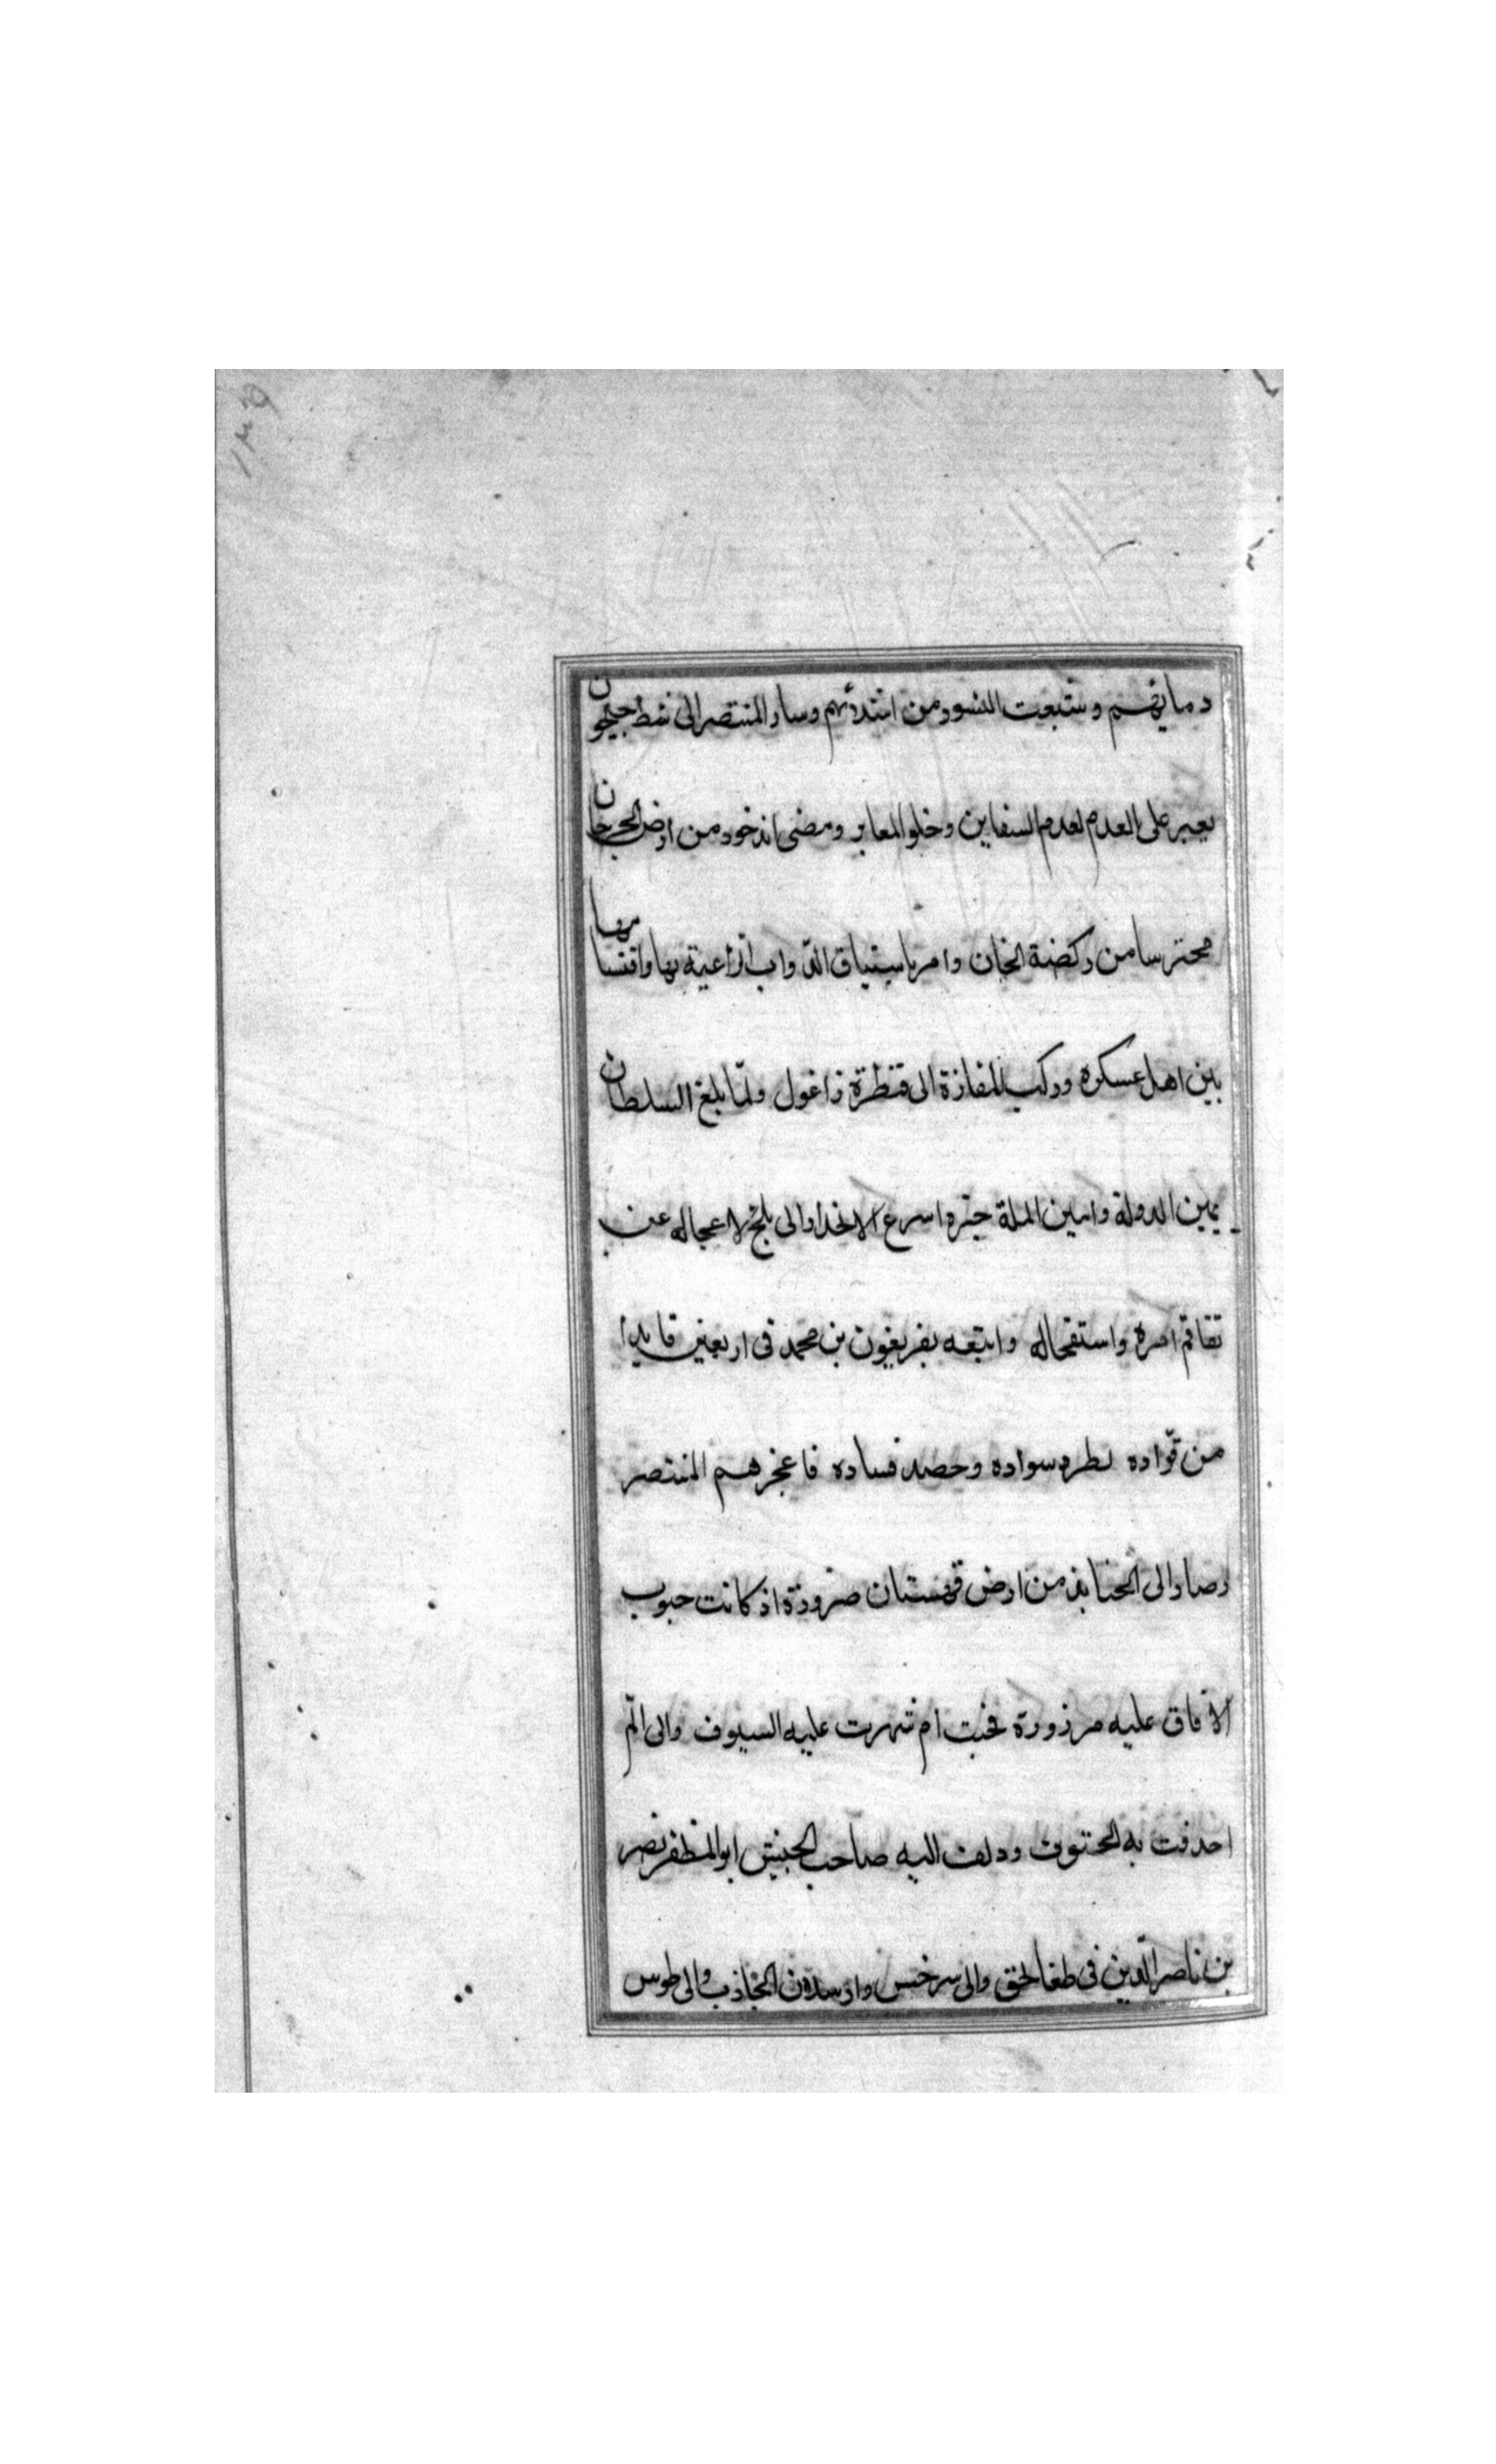 دمايهم وشبعت النسور من اشلائهم وسار المنتصر الى شط جيحون
يعبر على العدم لعدم السفاين وخلو المعابر ومضى اندخود من ارض الجرجان
محترسا من ركضة الخان وامر باستياق الدواب الراعية بها واقتسامها
بين اهل عسكره وركب المفازة الى قنطرة زاغول ولما بلغ السلطان
يمين الدولة وامين الملة خبره اسرع الانحدار الى بلخ لاعجاله عن
تفاقم امره واستفحاله واتبعه بفريغون بن محمد فى اربعين قايدا
من قواده لطرد سواده وحصد فساده فاعجزهم المنتصر
وصار الى الجنابذ من ارض قهستان ضرورة اذ كانت جيوب
الافاق عليه مزرورة فحيث ام شهرت عليه السيوف والى الم
احدقت به الحتوف ودلف اليه صاحب الجيش ابو المظفر نصر
بن ناصر الدين فى طغالجق والى سرخس وارسلان الجاذب والى طوس